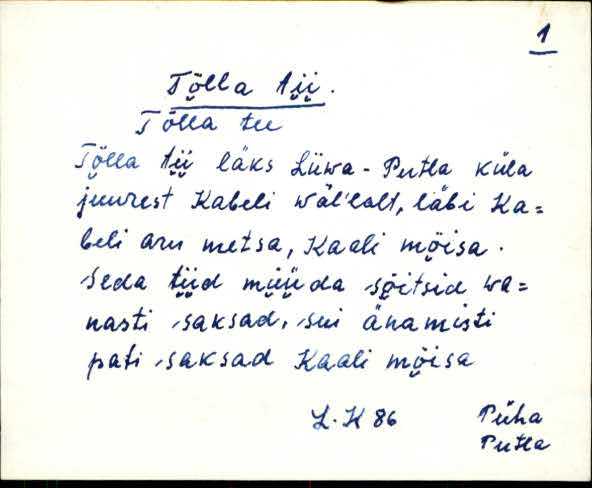 1
Tõlla tii.
Tõlla tee
Tõlla tii läks Liiwa-Putla küla
juurest Kabeli wäl'lalt, läbi Ka=
beli aru metsa, Kaali mõisa.
Seda tiid müüda sõitsid wa=
nasti saksad, sui änamisti
pati saksad Kaali mõisa
L. K 86 Püha
Putla